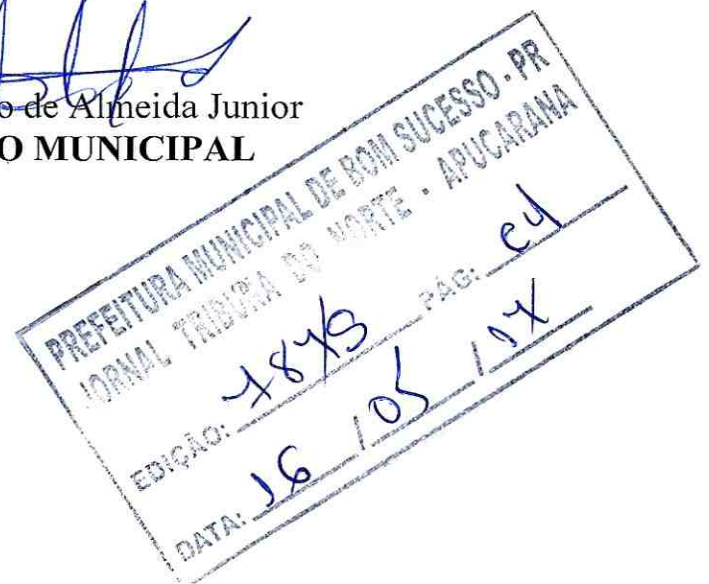 o de Almeida Junior
O MUNICIPAL
PREFEITURA MUNICIPAL DE BOM SUCESSO - PR
JORNAL TRIBUNA DO NORTE - APUCARANA
EDIÇÃO: 7875 PÁG: C4
DATA: 16 / 05 / 17